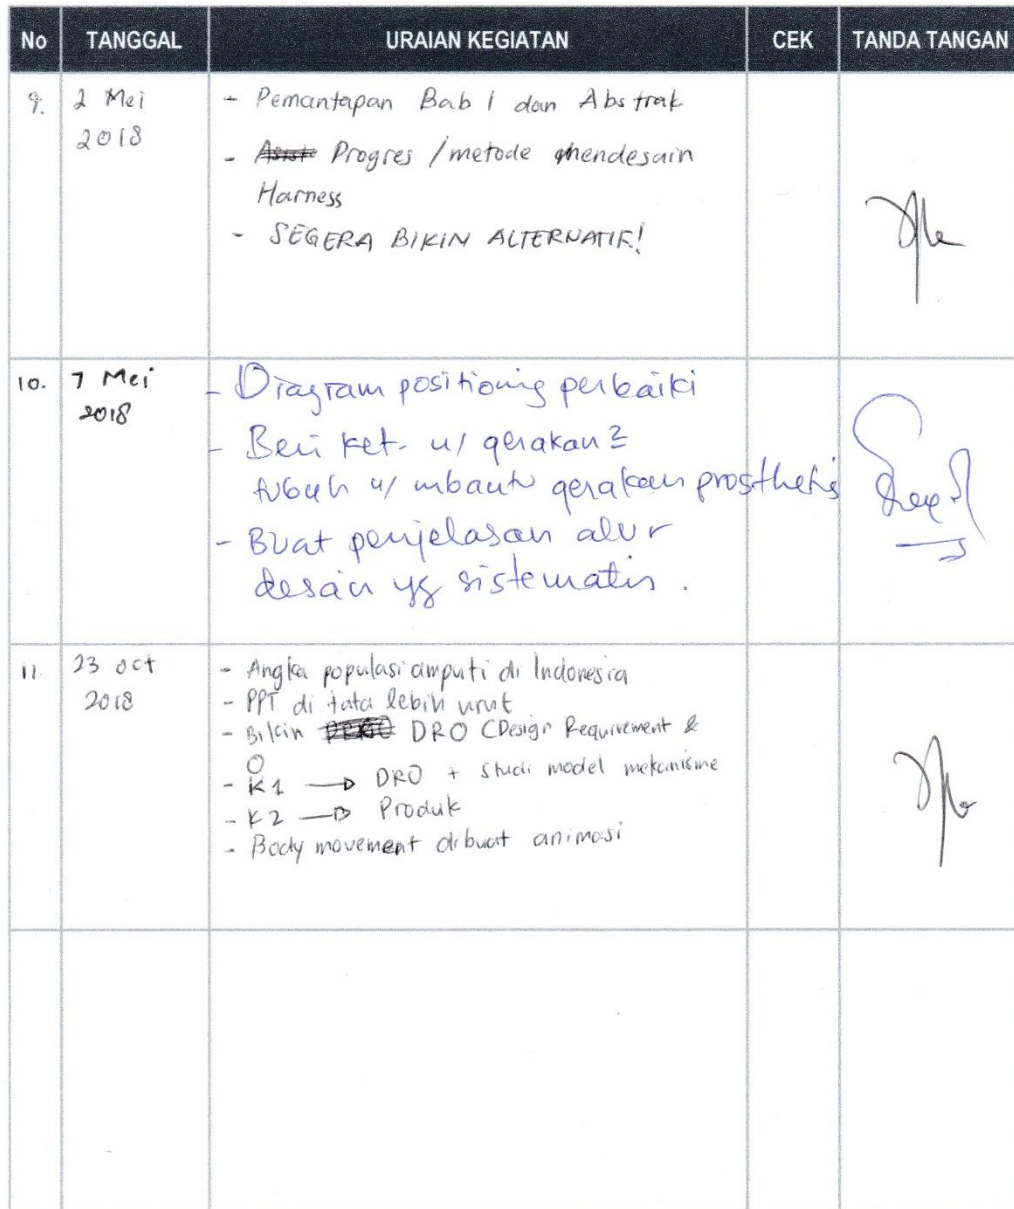 No TANGGAL URAIAN KEGIATAN CEK TANDA TANGAN
9. 2 Mei 2018
- Pemantapan Bab 1 dan Abstrak
- Progres / metode mendesain
Harness
- SEGERA BIKIN ALTERNATIF!
10. 7 Mei 2018
- Diagram positioning perbaiki
- Beri ket. u/ gerakan2
tubuh u/ mbantu gerakan prosthetis
- Buat penjelasan alur
desain yg sistematis.
11. 23 oct 2018
- Angka populasi amputi di Indonesia
- PPT di tata lebih urut
- Bikin DRO (Design Requirement &
O
- K1 → DRO + Studi model mekanisme
- K2 → Produk
- Body movement dibuat animasi